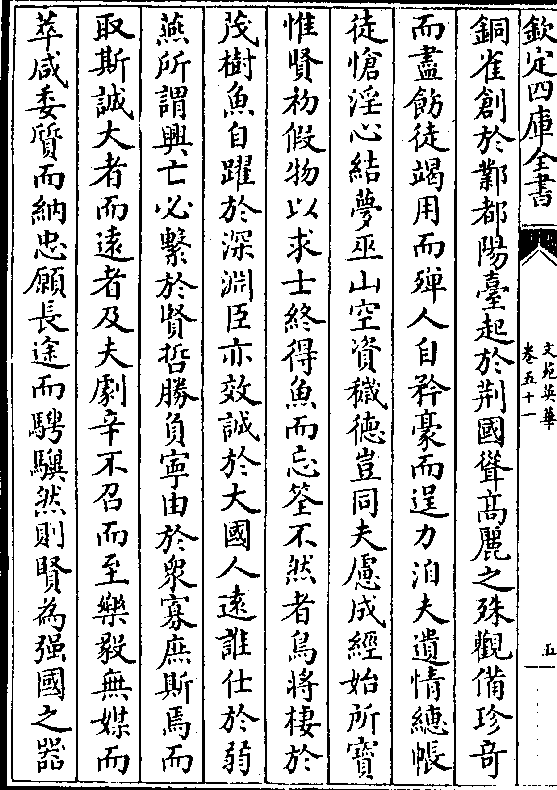 欽定四庫全書
文苑英華
卷五十一
五
銅雀創於鄴都陽臺起於荆國聳高麗之殊觀備珍奇
而盡飭徒竭用而殫人自矜豪而逞力洎夫遺情繐帳
徒愴淫心結夢巫山空資穢徳豈同夫慮成經始所寳
惟賢初假物以求士終得魚而忘筌不然者鳥將棲於
茂樹魚自躍於深淵臣亦效誠於大國人遠誰仕於弱
燕所謂興亡必繫於賢哲勝負寧由於衆寡庶斯焉而
取斯誠大者而逺者及夫劇辛不召而至樂毅無媒而
萃咸委質而納忠願長途而騁驥然則賢為强國之器